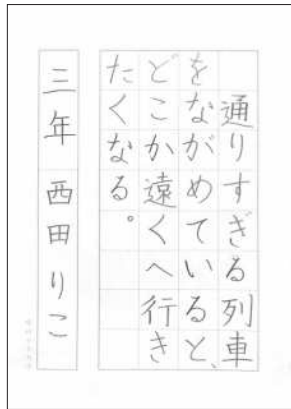 通りすぎる列車
をながめていると、
どこか遠くへ行き
たくなる。
三年 西田りこ